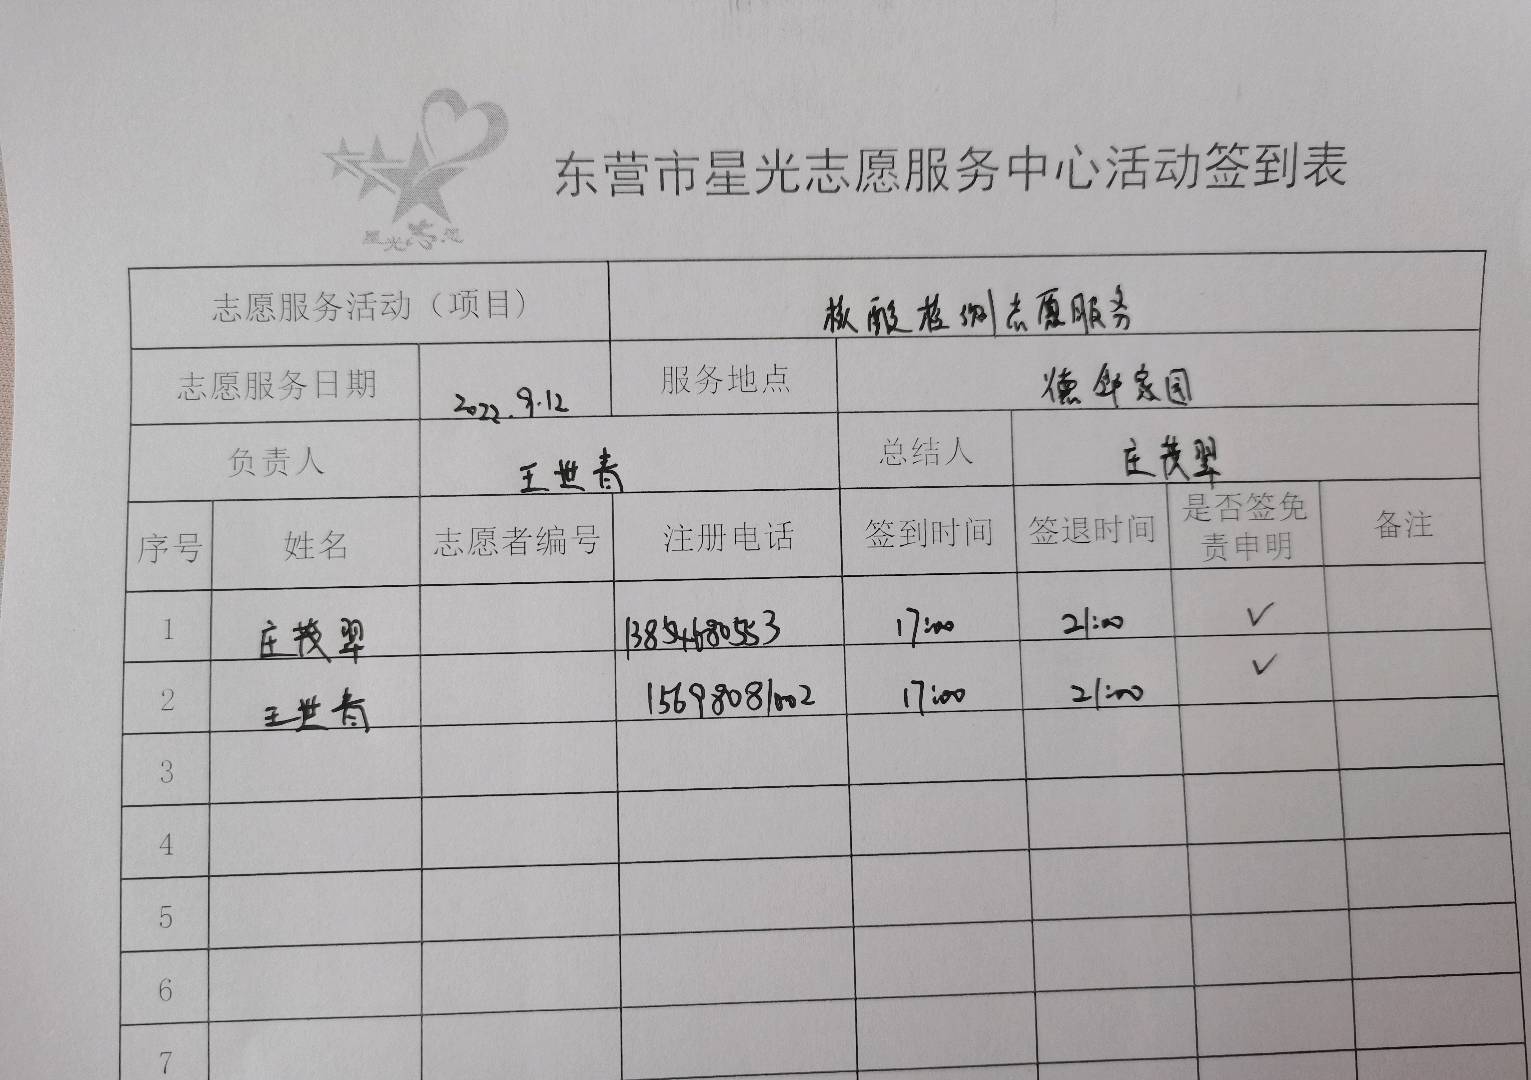 星光志愿
东营市星光志愿服务中心活动签到表
志愿服务活动（项目） 核酸检测志愿服务
志愿服务日期 2022.9.12 服务地点 德华家园
负责人 王世春 总结人 庄茂翠
序号 姓名 志愿者编号 注册电话 签到时间 签退时间 是否签免责申明 备注
1 庄茂翠 13854680553 17:00 21:00 ✓
2 王世春 15698081002 17:00 21:00 ✓
3
4
5
6
7